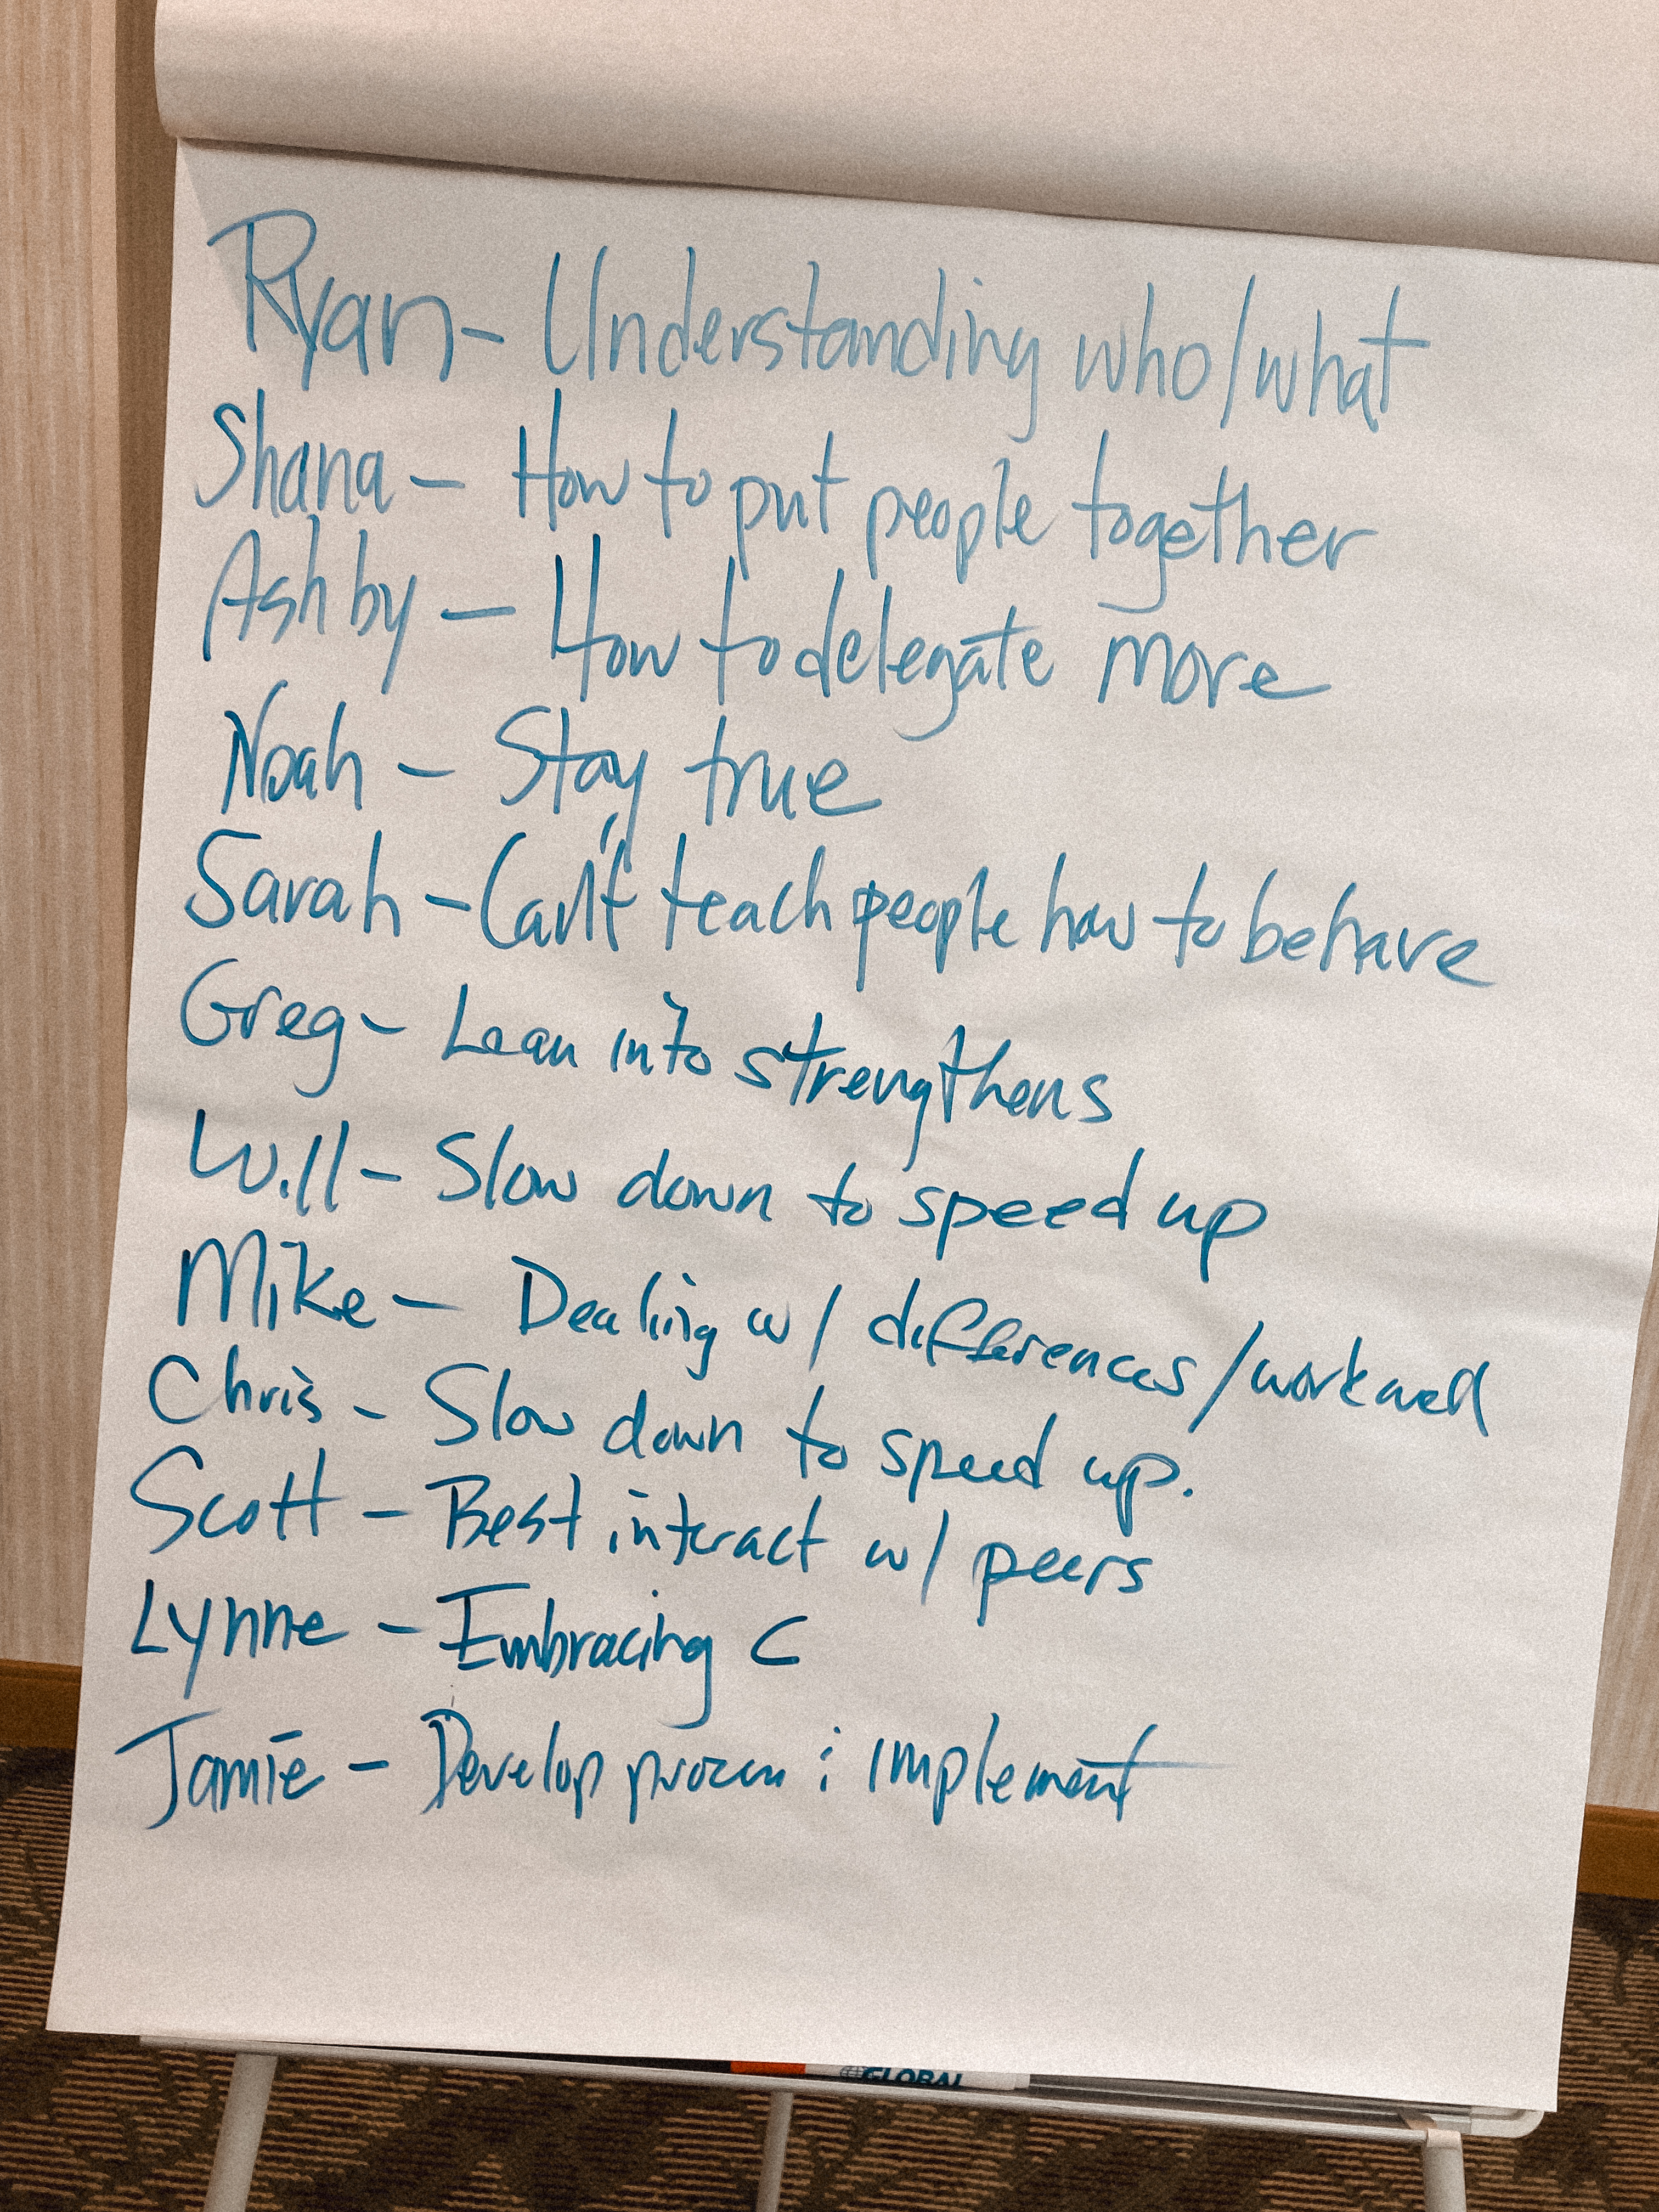 Ryan - Understanding who/what
Shana - How to put people together
Ashby - How to delegate more
Noah - Stay true
Sarah - Can't teach people how to behave
Greg - Lean into strengthens
Will - Slow down to speed up
Mike - Dealing w/ differences/work well
Chris - Slow down to speed up.
Scott - Best interact w/ peers
Lynne - Embracing C
Jamie - Develop implement
GLOBAL